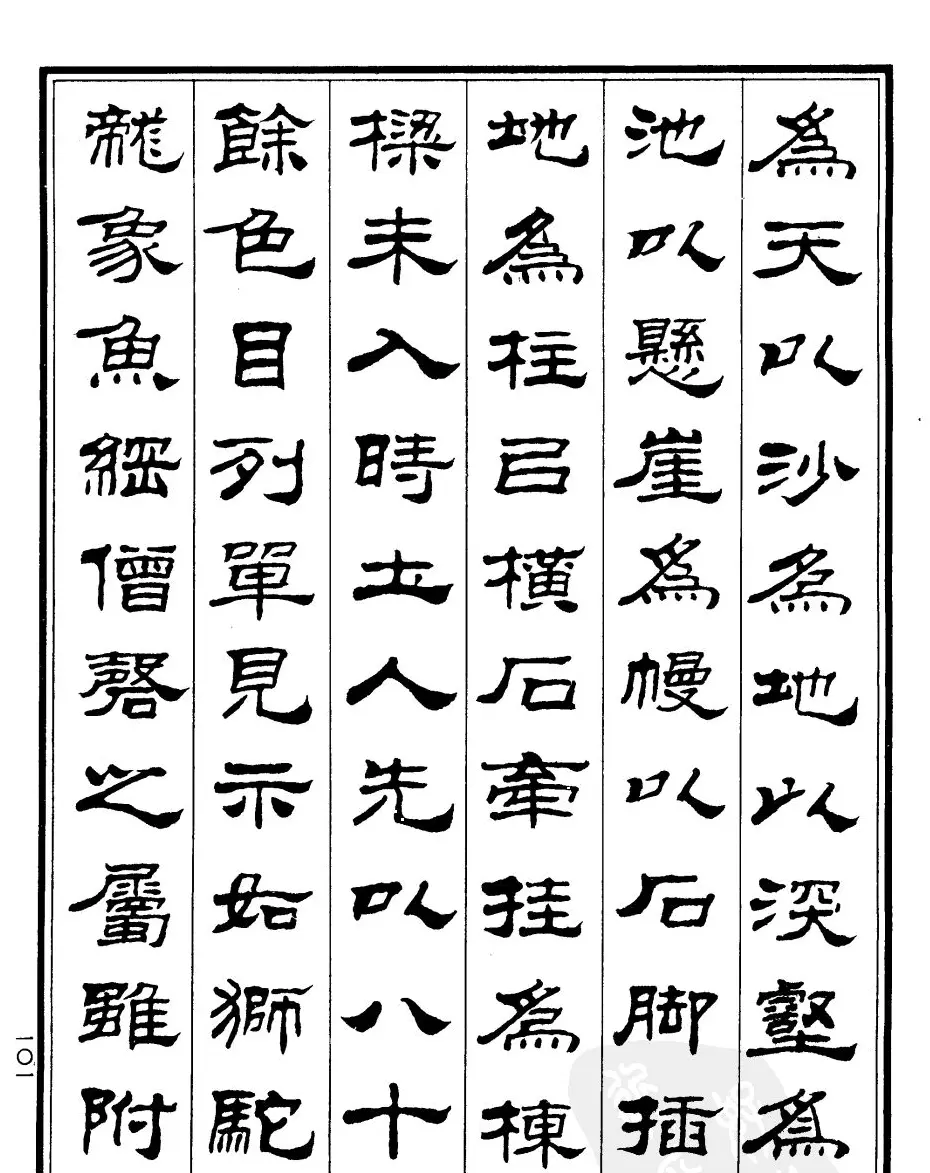 為天以沙為地以深壑為
池以懸崖為幔以石脚插
地為柱㠯橫石牽挂為棟
樑未入時土人先以八十
餘色目列單見示如獅駝
龍象魚網僧磬之屬雖附
一〇一